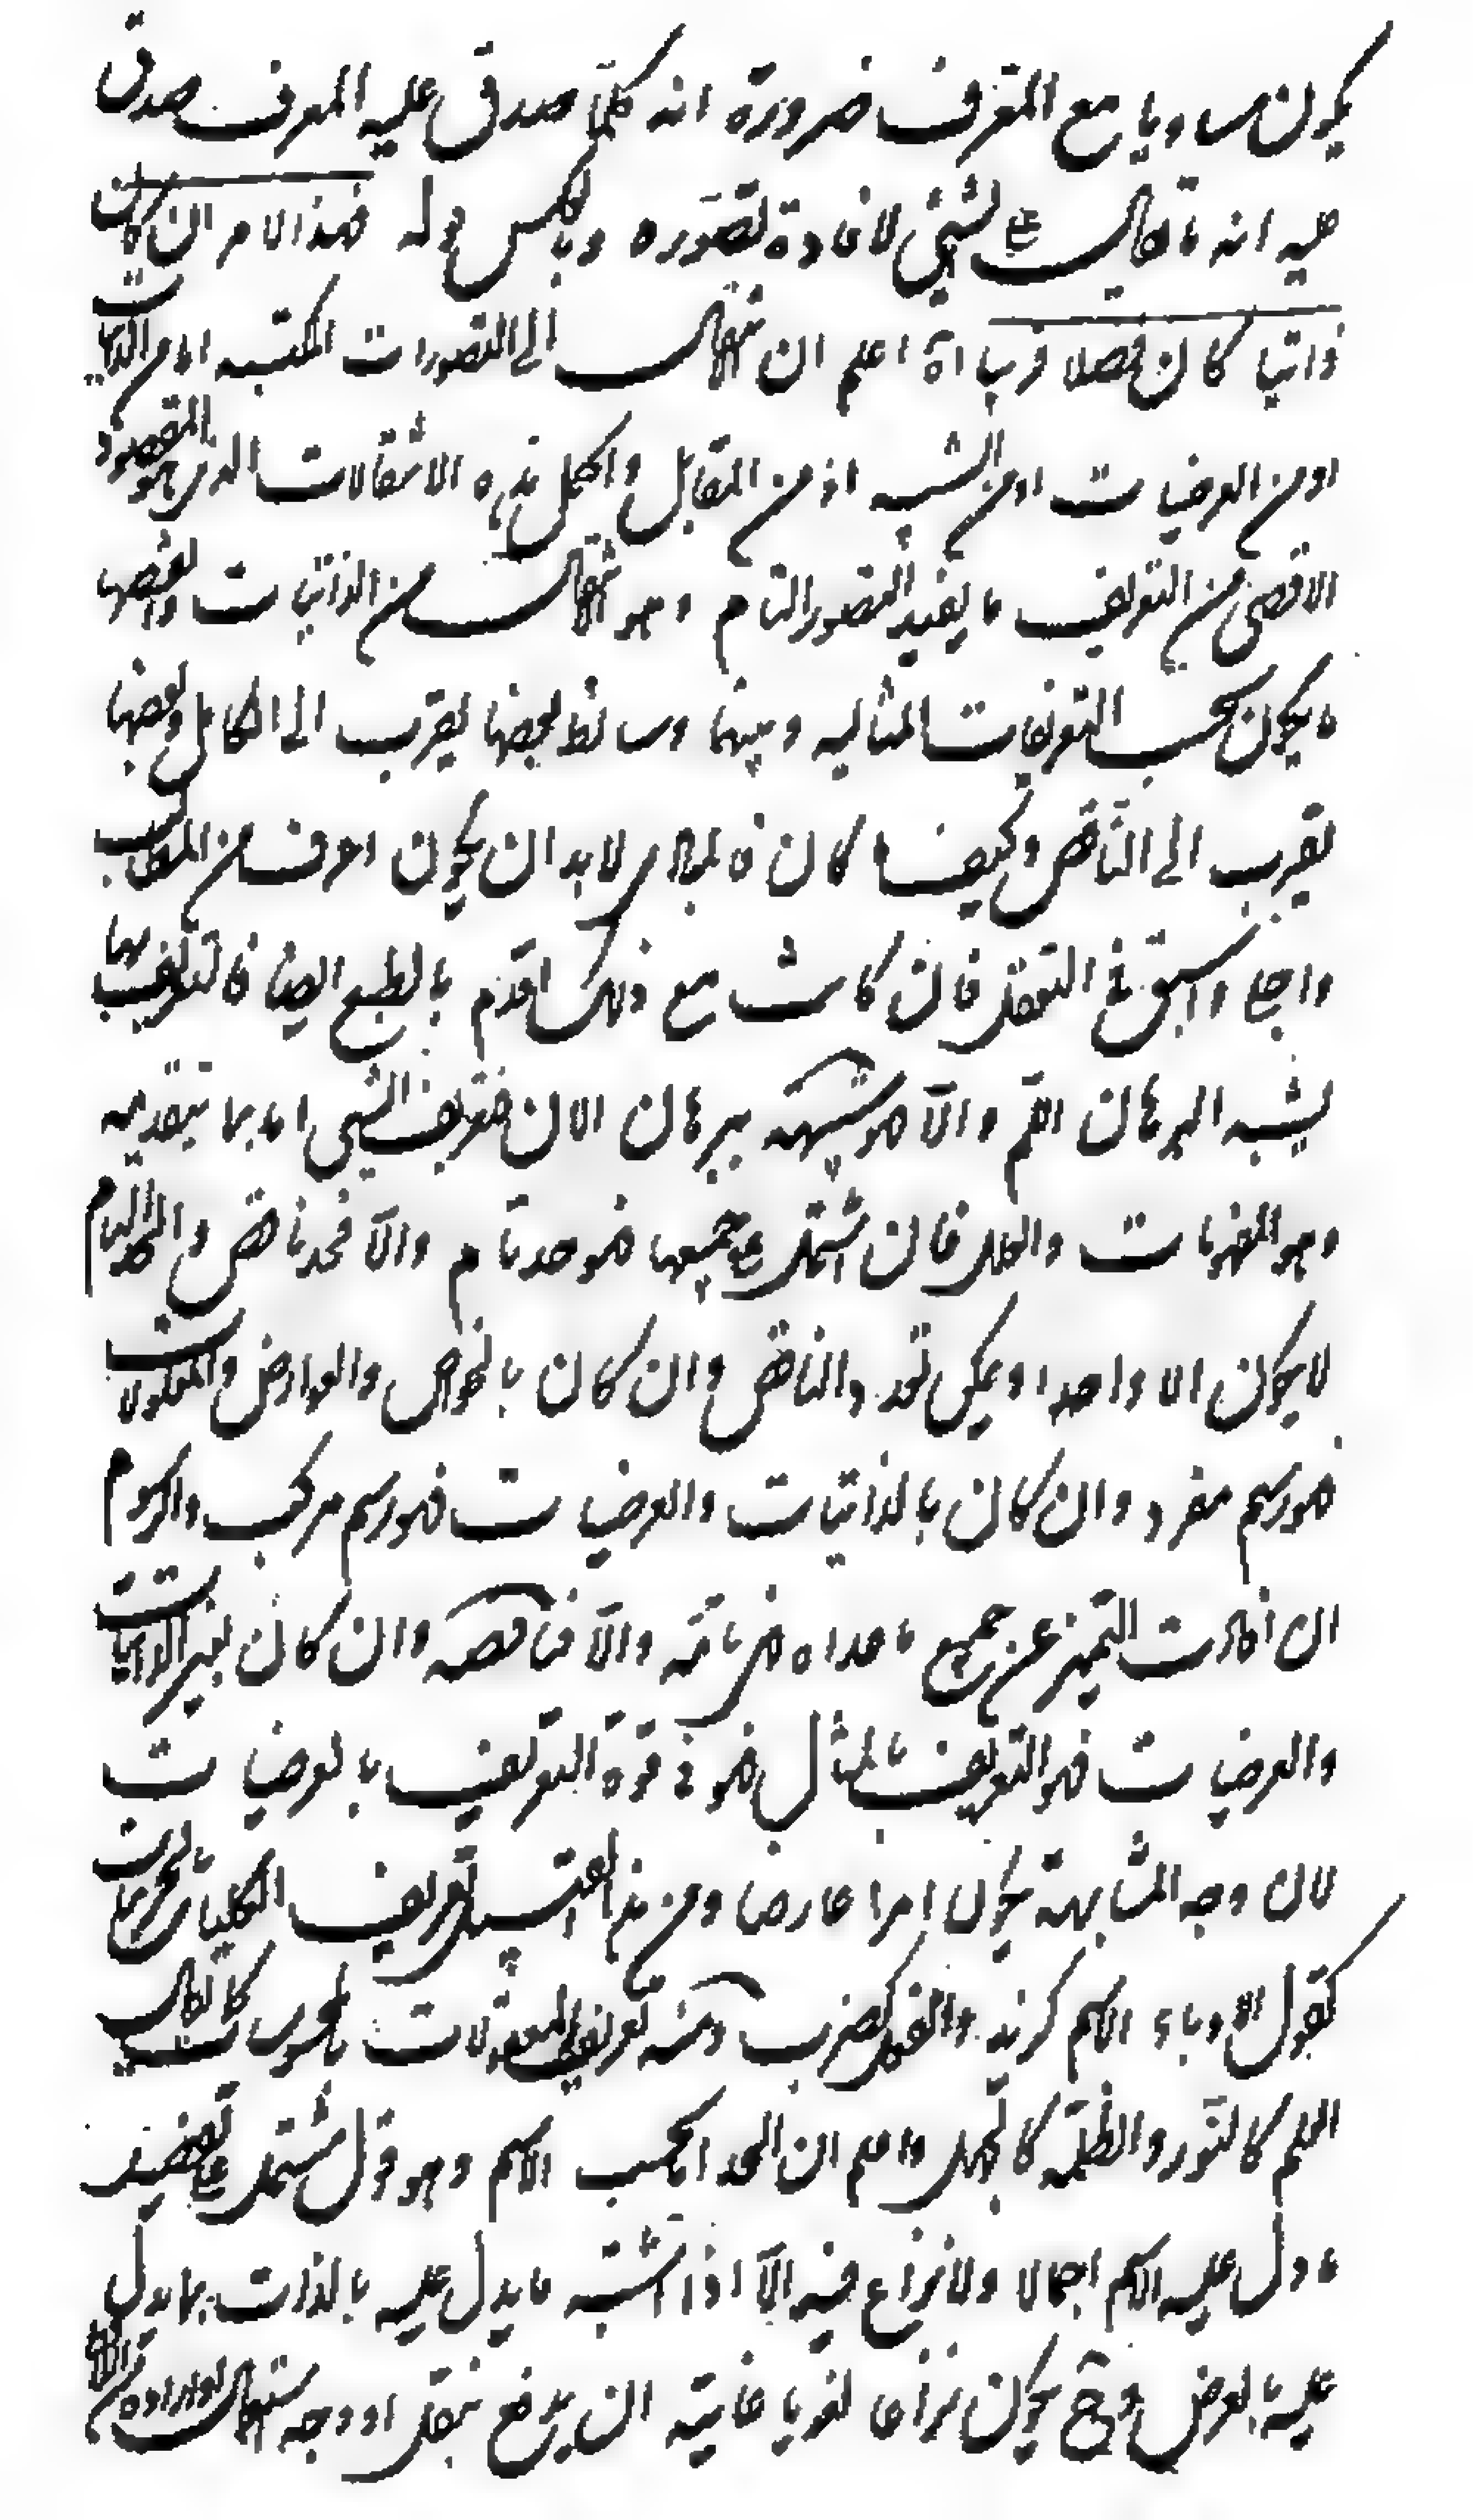 يكون مساويا مع المعرف ضرورة انه كلما صدق عليه المعرف صدق
عليه انه ما يقال على الشيء لافادة تصوره وبالعكس قوله فهذا الامر ان كان
ذاتيا كان فصلا قريبا اه اعلم ان الانتقال الى التصورات المكتسبة اما من الذاتيات
او من العرضيات او من الشبه او من المقابل واكمل هذه الانتقالات الذي هو المقصود
الاقصى من التعريف ما يفيد التصور التام وهو الانتقال من الذاتيات وانقصها
ما يكون بحسب التعريفات المثاليه وبينهما وسائط بعضها يقرب الى الكامل وبعضها
يقرب الى الناقص وكيف ما كان فالمبادى لا بد ان يكون اعرف من المطالب
واجلى واسبق في التعقل فان كانت مع ذلك اقدم بالطبع ايضا فالتعريف بها
يشبه البرهان اللم والا فهو شبهة ببرهان الان فتعريف الشيء اما بما يتقدمه
وهو المقومات والعلل فان اشتمل على جميعها فهو حد تام والا فحد ناقص والحد التام
لا يكون الا واحدا ويمكن تعدد الناقص وان كان بالخواص والعوارض والمعلولات
فهو رسم مفرد وان كان بالذاتيات والعرضيات فهو رسم مركب والرسوم
ان افادت التميز عن جميع ما عداه فهي تامة والا فناقصة وان كان بغير الذاتيات
والعرضيات فهو التعريف بالمثال فهو في قوة التعريف بالعرضيات
لان وجه المشابهة يكون امرا عارضا ومن هذا القبيل تعريف الكليات بالجزئيات
كقول الادباء الاسم كزيد والفعل كضرب ومنه تعريف المعقولات بالمحسوسات كما يقال
العلم كالنور والظلمة كالجهل واعلم ان الحد اما بحسب الاسم وهو قول مشتمل على تفصيل
ما دل عليه الاسم اجمالا ولا نزاع فيه الا اذا اشتبه ما يدل عليه بالذات بما يدل
عليه بالعرض وح يكون نزاعا لغويا غايته ان يدفع بنقل او وجه استعمال او ارادة